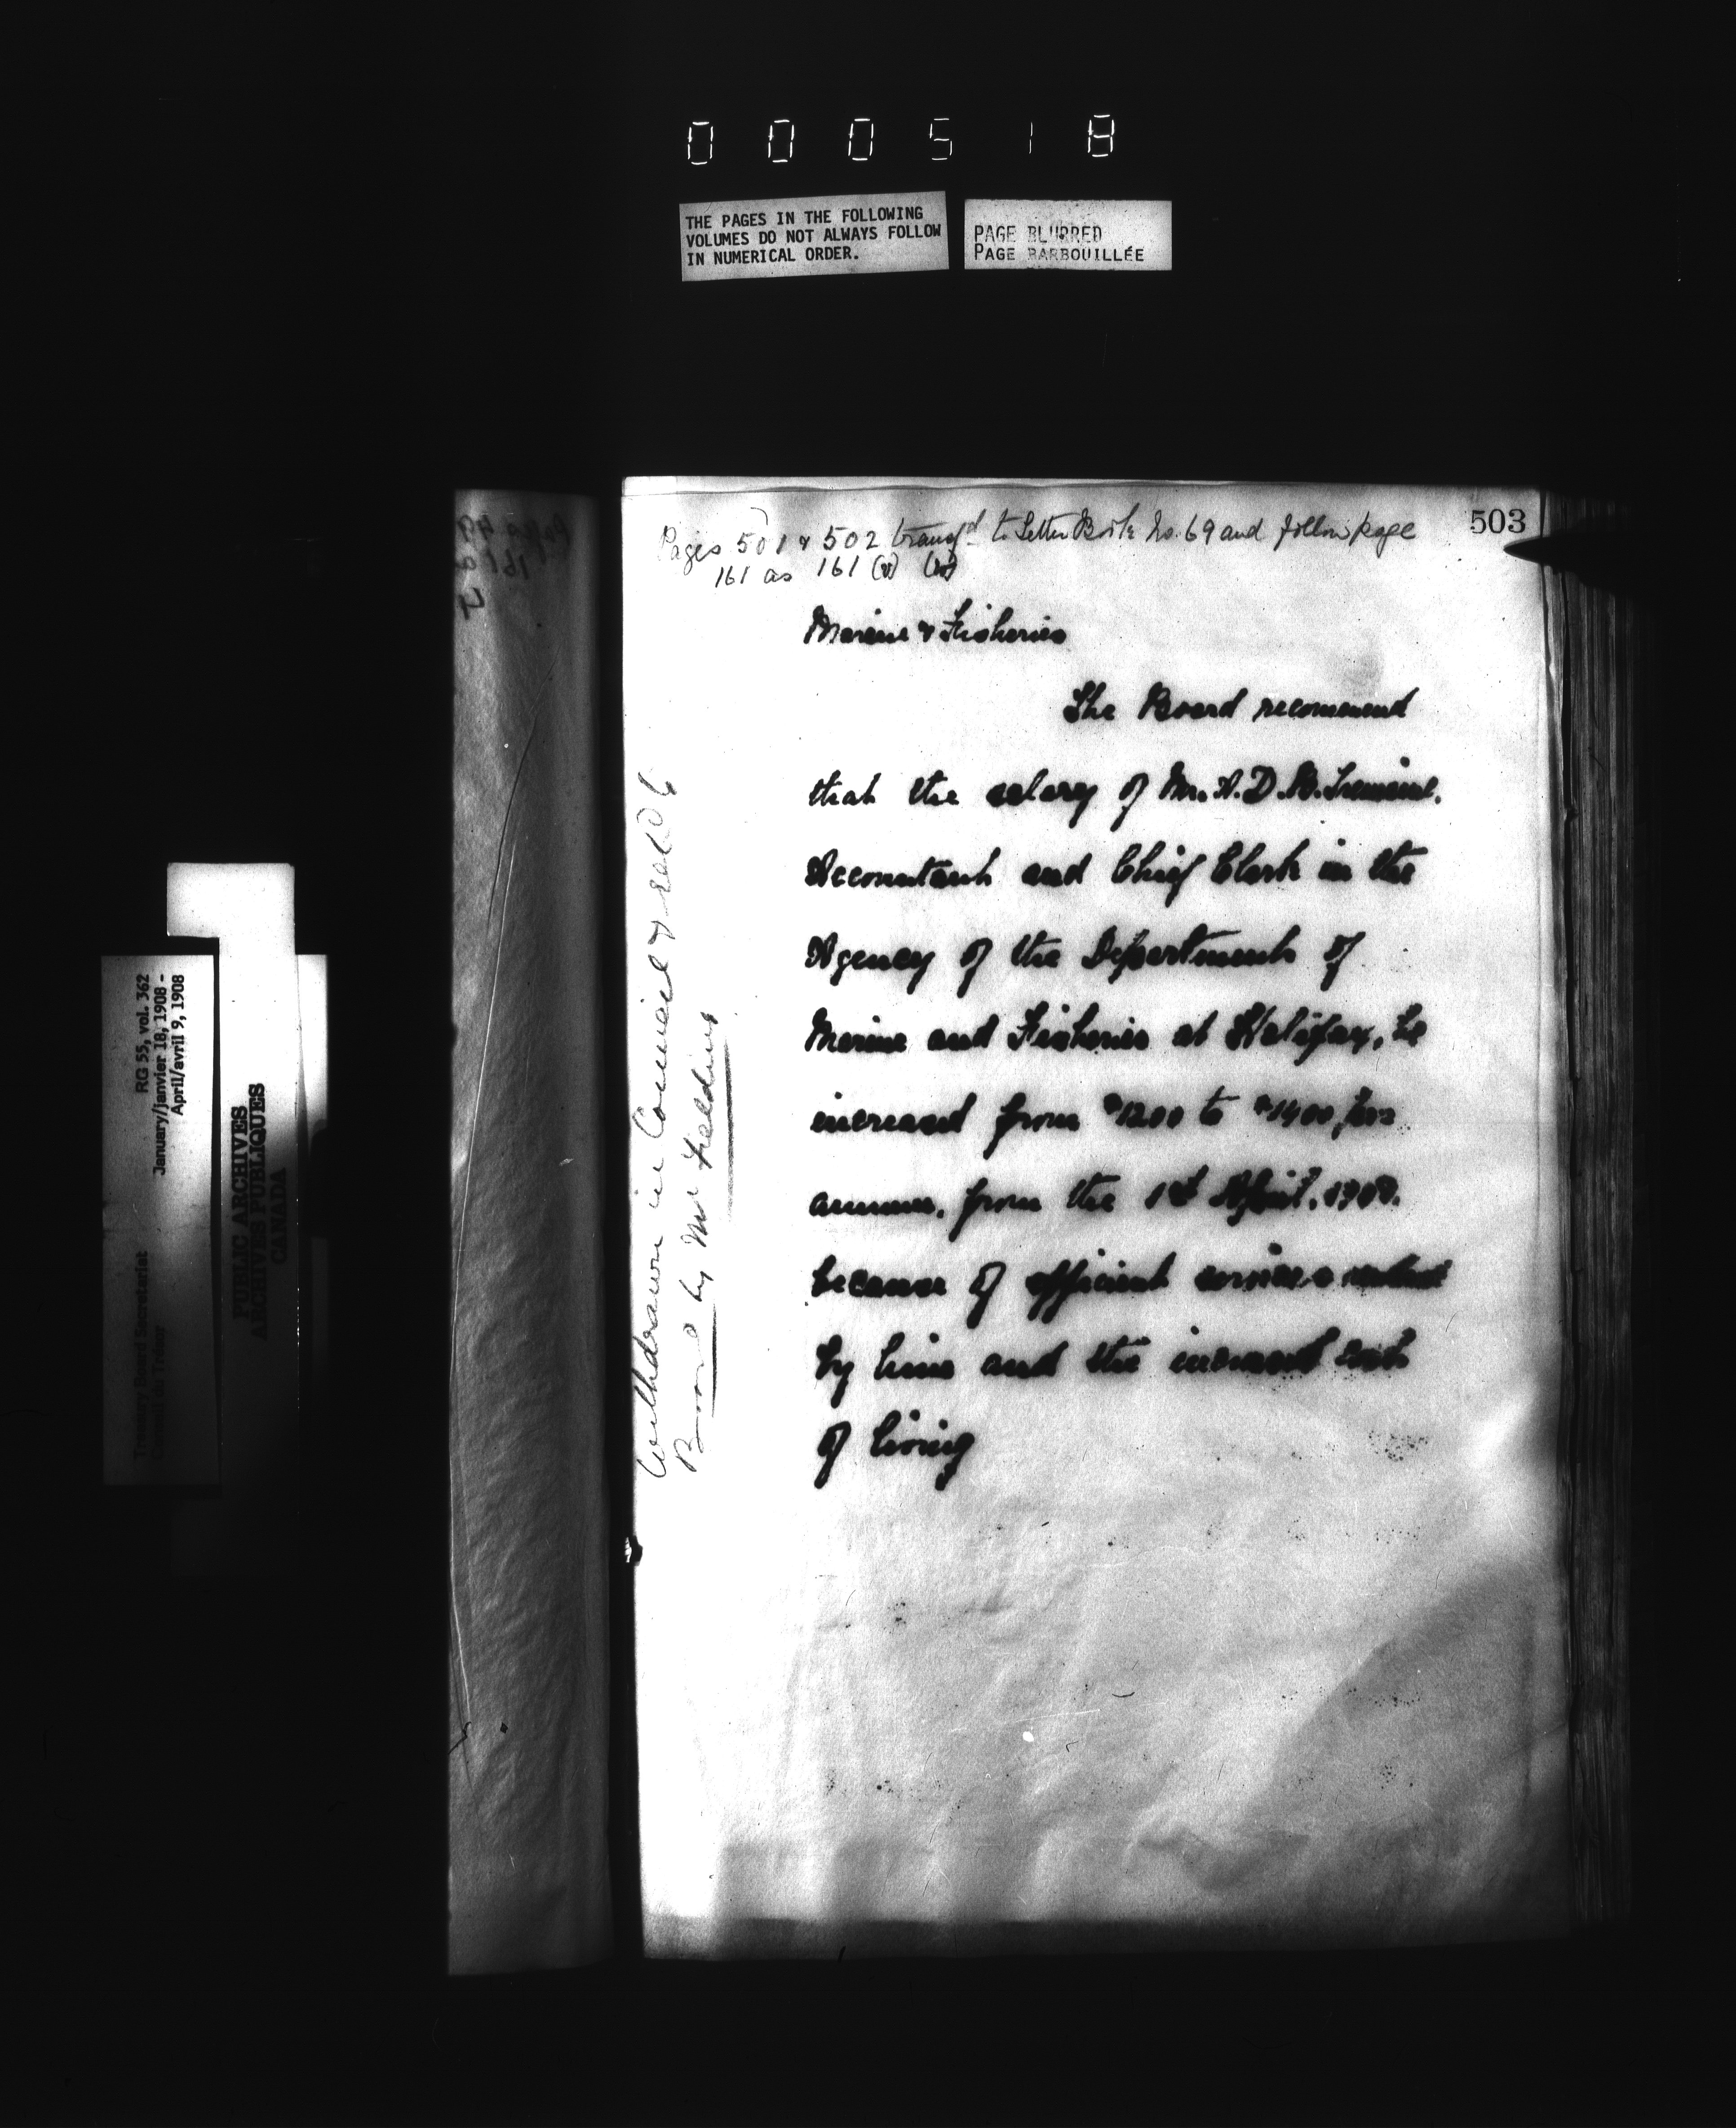 000518
THE PAGES IN THE FOLLOWING
VOLUMES DO NOT ALWAYS FOLLOW
IN NUMERICAL ORDER.
PAGE BLURRED
PAGE BARBOUILLÉE
503
Pages 501 & 502 transfd to Letter Book No. 69 and follow page
161 as 161
Marine & Fisheries
The Board recommend
that the salary of Mr. A.D.B. Tremaine,
Accountant and Chief Clerk in the
Agency of the Department of
Marine and Fisheries at Halifax, be
increased from $1200 to $1400, per
annum, from the 1st April, 1908,
because of efficient services rendered
by him and the increased cost
of living
Withdrawn in Council &
Board by Mr Fielding
Treasury Board Secretariat
Conseil du Trésor
RG 55, vol. 362
January/janvier 18, 1908 -
April/avril 9, 1908
PUBLIC ARCHIVES
ARCHIVES PUBLIQUES
CANADA